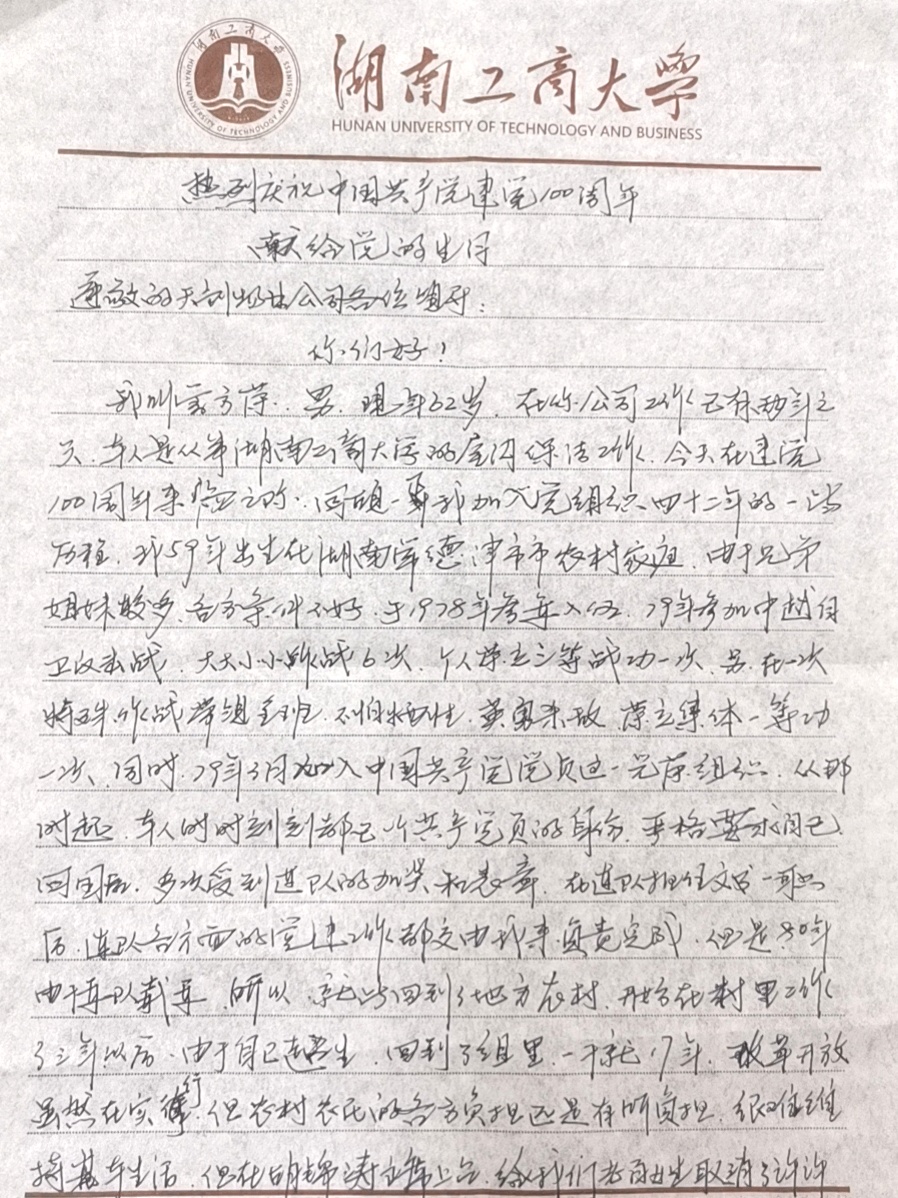 湖南工商大学
HUNAN UNIVERSITY OF TECHNOLOGY AND BUSINESS
湖南工商大学
HUNAN UNIVERSITY OF TECHNOLOGY AND BUSINESS
热烈庆祝中国共产党建党100周年
献给党的生日
尊敬的天创物业公司各位领导:
你们好!
我叫方荷.男.现年62岁.在你公司工作已有两年之
久.本人是从事湖南工商大学的保洁工作.今天在建党
100周年来临之际.回顾一下我加入党组织四十二年的一段
历程.我59年出生在湖南常德津市市农村家庭.由于兄弟
姐妹较多.各方条件不好.于1978年参军入伍.79年参加中越自
卫反击战.大大小小作战6次.个人荣立三等战功一次.另.在一次
特殊作战带领全班.不怕牺牲.英勇杀敌.荣立集体一等功
一次.同时.79年3月加入中国共产党党员这一光荣组织.从那
时起.本人时时刻刻都已一个共产党员的身份.严格要求自己.
回国后.多次受到连队的加奖和表章.在连队担任文书一职
后.连队各方面的党建工作都交由我来负责完成.但是80年
由于军队裁军.所以.就回到了地方农村.开始在村里工作
了三年以后.由于自己超生.回到了组里.一干就17年.改革开放
虽然在实行.但农村农民的各方负担还是有所负担.很难维
持基本生活.但在胡锦涛主席上台.给我们老百姓取消了许许